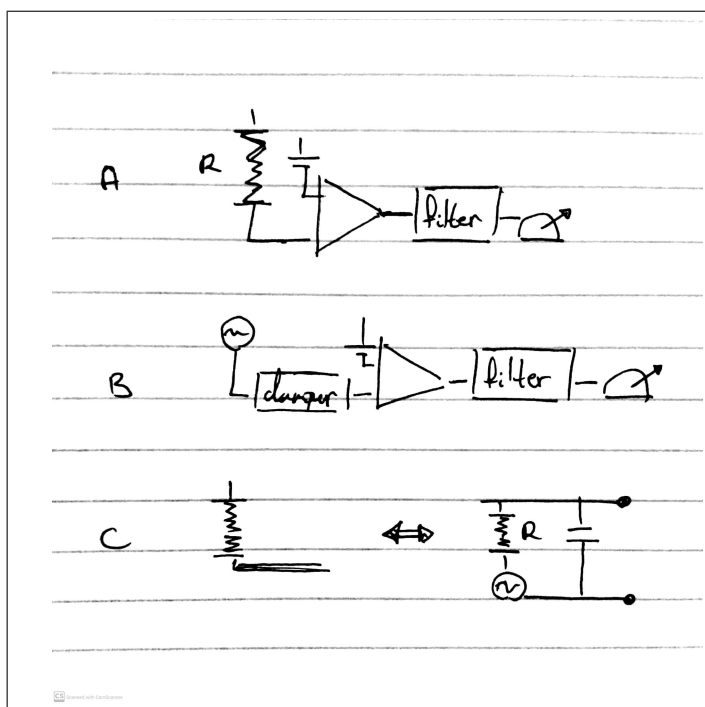 R
A
filter
B
filter
C
R
CS Scanned with CamScanner